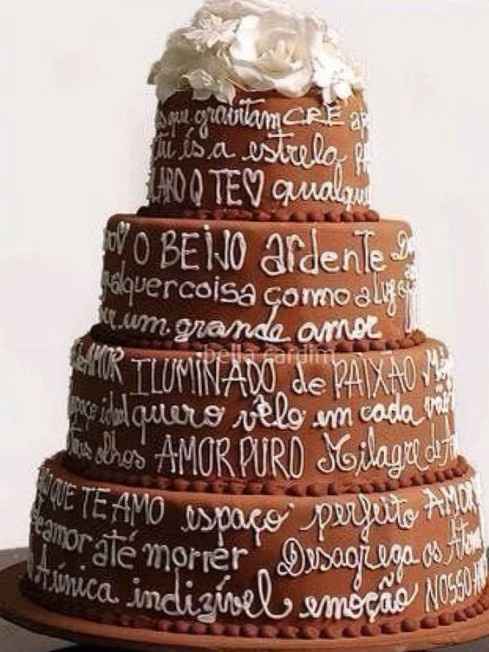 que gravitam CRE
tu és a estrela
CLARO O TE♡ qualquer
♡ O BEIJO ardente
qualquer coisa como a luz
um grande amor
AMOR ILUMINADO de PAIXÃO
espaço ideal quero vê-lo em cada vão
teus olhos AMOR PURO Milagre de
QUE TE AMO espaço perfeito AMOR
de amor até morrer Desagrega os
A única indizível emoção NOSSO